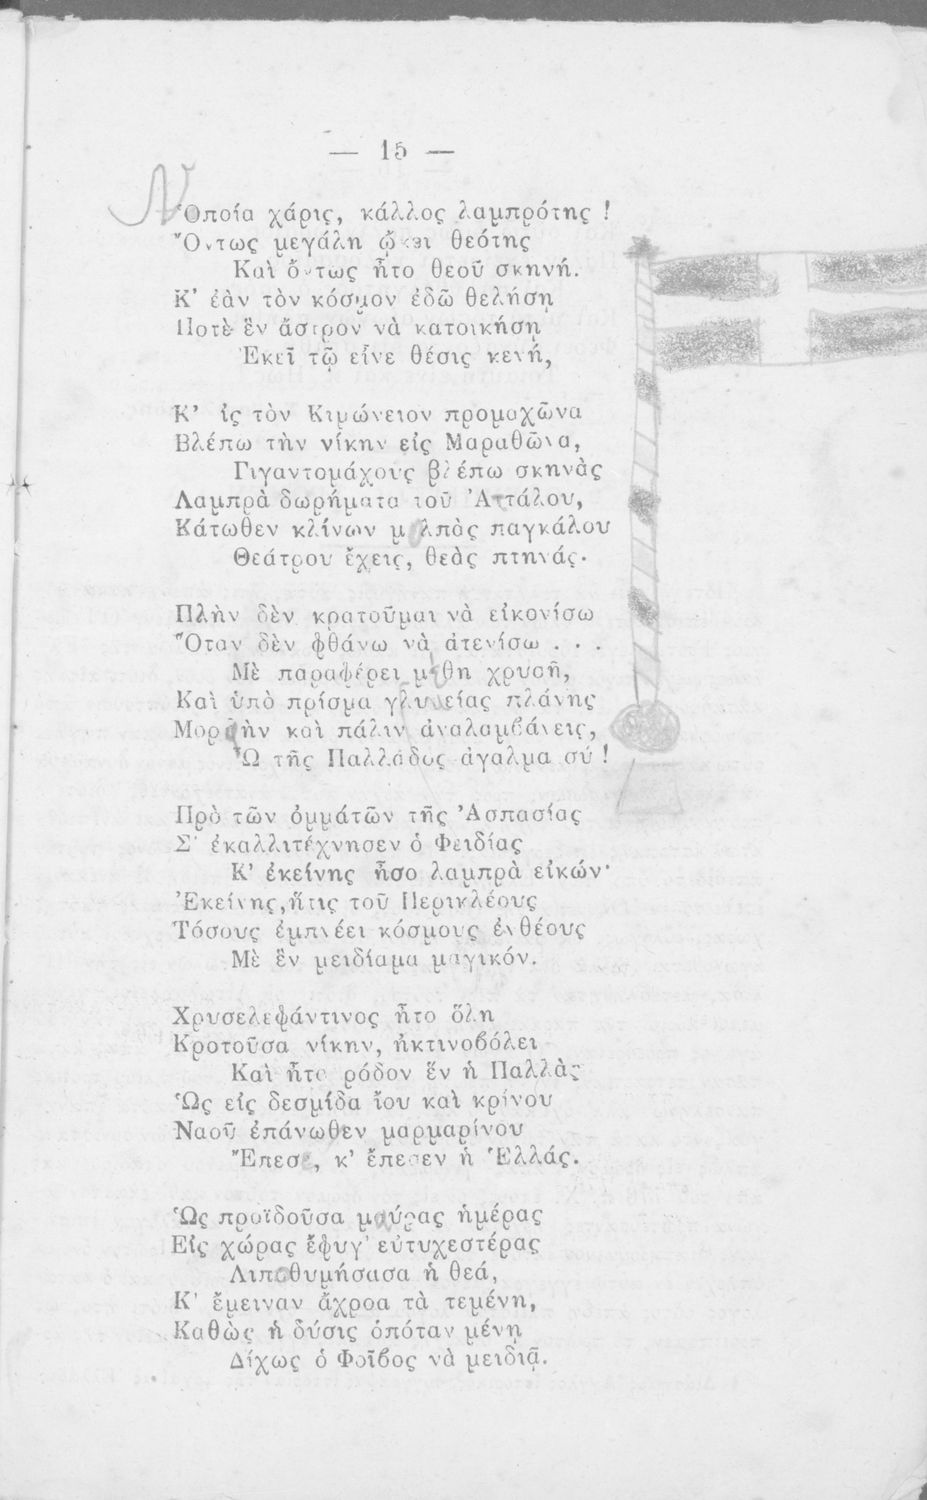 — 15 —
Ὁποία χάρις, κάλλος λαμπρότης !
Ὄντως μεγάλη ᾤκει θεότης
Καὶ ὄντως ἦτο θεοῦ σκηνή.
Κ’ ἐὰν τὸν κόσμον ἐδῶ θελήσῃ
Ποτὲ ἓν ἄστρον νὰ κατοικήσῃ
Ἐκεῖ τῷ εἶνε θέσις κενή,
Κ’ ἰς τὸν Κιμώνειον προμαχῶνα
Βλέπω τὴν νίκην εἰς Μαραθῶνα,
Γιγαντομάχους βλέπω σκηνὰς
Λαμπρὰ δωρήματα τοῦ Ἀττάλου,
Κάτωθεν κλίνων μολπὰς παγκάλου
Θεάτρου ἔχεις, θεὰς πτηνάς·
Πλὴν δὲν κρατοῦμαι νὰ εἰκονίσω
Ὅταν δὲν φθάνω νὰ ἀτενίσω . . .
Μὲ παραφέρει μέθη χρυσῆ,
Καὶ ὑπὸ πρίσμα γλυκείας πλάνης
Μορφὴν καὶ πάλιν ἀναλαμβάνεις,
Ὦ τῆς Παλλάδος ἄγαλμα σύ !
Πρὸ τῶν ὀμμάτῶν τῆς Ἀσπασίας
Σ’ ἐκαλλιτέχνησεν ὁ Φειδίας
Κ’ ἐκείνης ἦσο λαμπρὰ εἰκών·
Ἐκείνης, ἥτις τοῦ Περικλέους
Τόσους ἐμπνέει κόσμους ἐνθέους
Μὲ ἓν μειδίαμα μαγικόν.
Χρυσελεφάντινος ἦτο ὅλη
Κροτοῦσα νίκην, ἠκτινοβόλει
Καὶ ἦτο ρόδον ἕν ἡ Παλλὰς
Ὡς εἰς δεσμίδα ἴου καὶ κρίνου
Ναοῦ ἐπάνωθεν μαρμαρίνου
Ἔπεσε, κ’ ἔπεσεν ἡ Ἑλλάς.
Ὡς προϊδοῦσα μαύρας ἡμέρας
Εἰς χώρας ἔφυγ’ εὐτυχεστέρας
Λιποθυμήσασα ἡ θεά,
Κ’ ἔμειναν ἄχροα τὰ τεμένη,
Καθὼς ἡ δύσις ὁπόταν μένῃ
Δίχως ὁ Φοῖβος νὰ μειδιᾷ.